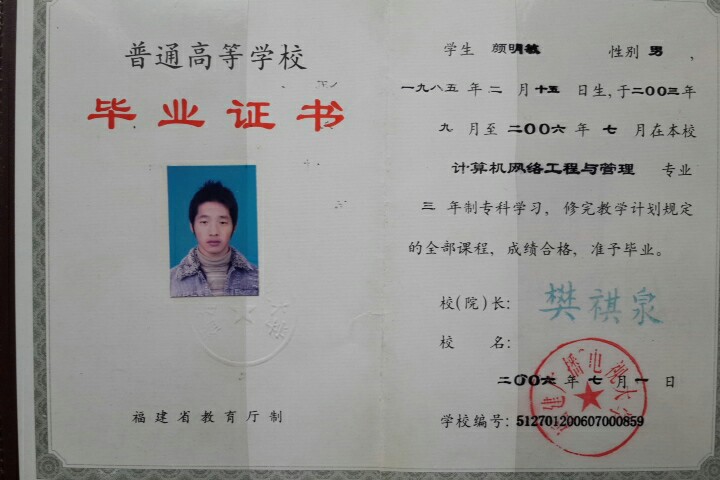 普通高等学校
毕业证书
福建省教育厅制
学生 颜明敏 性别 男 ,
一九八五 年 二 月 十五 日生,于二〇〇三年
九 月至 二〇〇六 年 七 月在本校
计算机网络工程与管理 专业
三 年制专科学习, 修完教学计划规定
的全部课程, 成绩合格, 准予毕业。
校(院)长: 樊祺泉
校 名:
福建广播电视大学
二〇〇六 年 七 月 一 日
学校编号: 512701200607000859